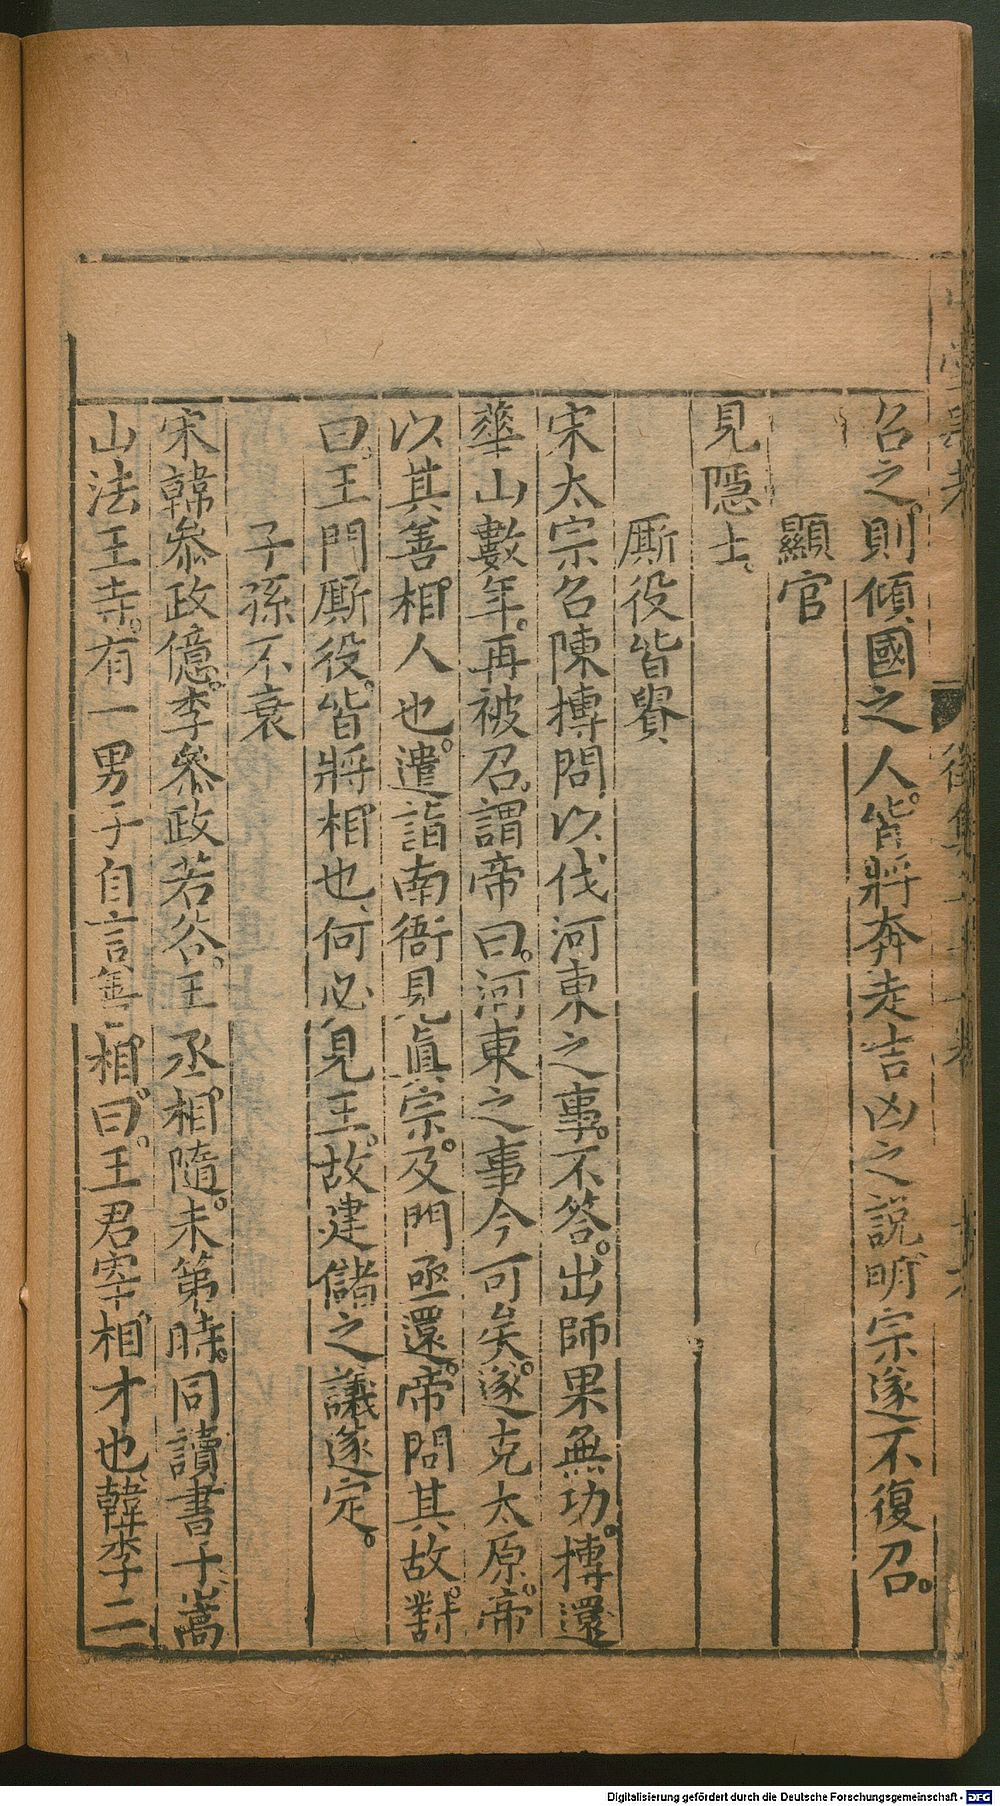 召之則傾國之人皆將奔走吉凶之説明宗遂不復召。
顯官
見隱士。
厮役皆貴
宋太宗召陳摶問以伐河東之事。不答。出師果無功。摶還
華山數年。再被召。謂帝曰。河東之事今可矣。遂克太原。帝
以其善相人也。遣詣南衙見眞宗。及門亟還。帝問其故。對
曰。王門厮役。皆將相也、何必見王。故建儲之議遂定。
子孫不衰
宋韓叅政億。李叅政若谷。王丞相隨。未第時。同讀書于嵩
山法王寺。有一男子自言善相。曰。王君宰相才也韓李二
Digitalisierung gefördert durch die Deutsche Forschungsgemeinschaft - DFG